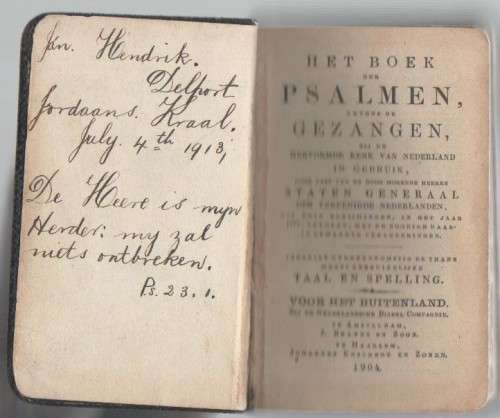 Jan. Hendrik.
Delport.
Jordaans. Kraal.
July. 4th 1913;
De Heere is myn
Herder: my zal
niets ontbreken.
Ps. 23. 1.
HET BOEK
DER
PSALMEN,
NEVENS DE
GEZANGEN,
BIJ DE
HERVORMDE KERK VAN NEDERLAND
IN GEBRUIK,
DOOR LAST VAN DE HOOG MOGENDE HEEREN
STATEN GENERAAL
DER VEREENIGDE NEDERLANDEN,
IN HET JAAR
TAAL EN SPELLING.
VOOR HET BUITENLAND.
BIJ DE NEDERLANDSCHE BIJBEL COMPAGNIE.
IN AMSTERDAM,
J. BRANDT EN ZOON.
IN HAARLEM,
JOHANNES ENSCHEDÉ EN ZONEN.
1904.